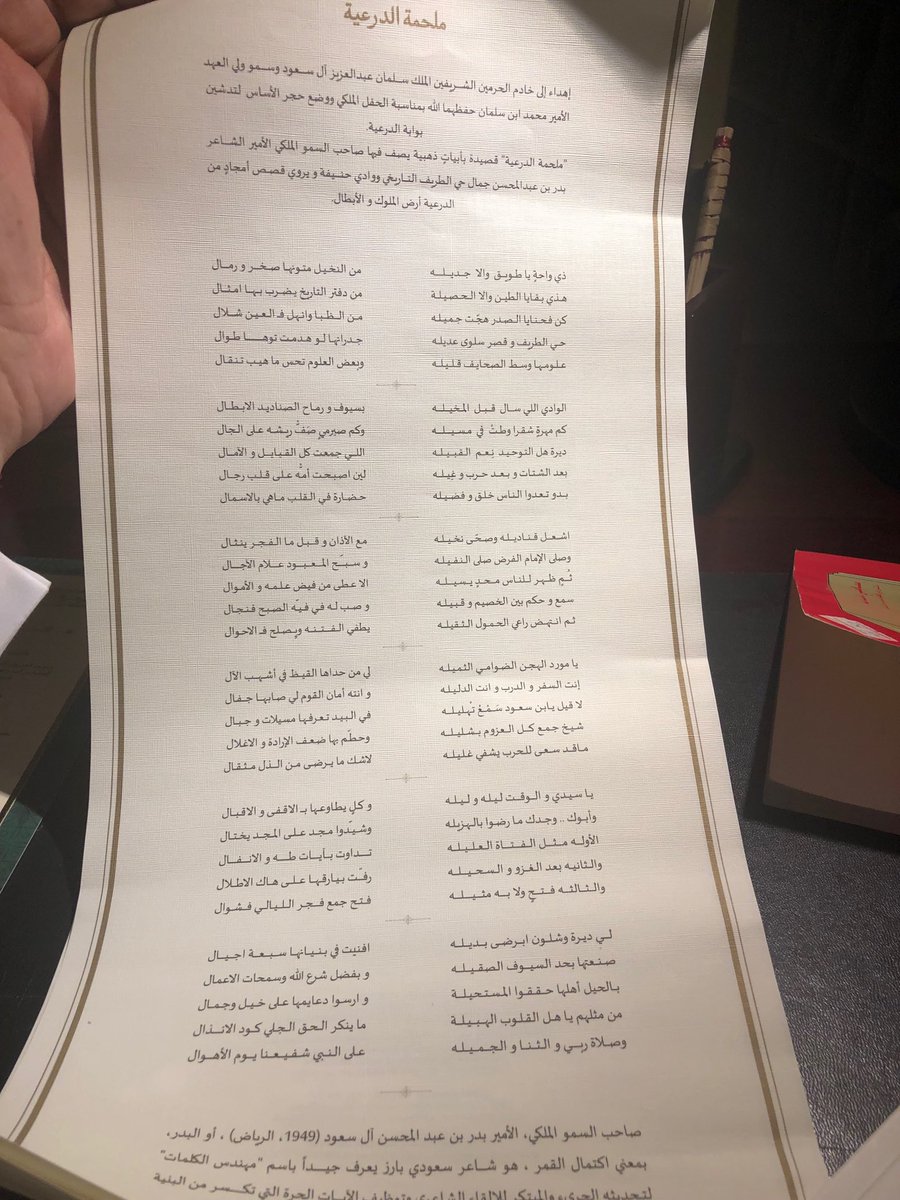 ملحمة الدرعية
إهداء إلى خادم الحرمين الشريفين الملك سلمان عبدالعزيز آل سعود وسمو ولي العهد
الأمير محمد ابن سلمان حفظهما الله بمناسبة الحفل الملكي ووضع حجر الأساس لتدشين
بوابة الدرعية.
"ملحمة الدرعية" قصيدة بأبياتٍ ذهبية يصف فيها صاحب السمو الملكي الأمير الشاعر
بدر بن عبدالمحسن جمال حي الطريف التاريخي ووادي حنيفة و يروي قصص أمجادٍ من
الدرعية أرض الملوك و الأبطال.
ذي واحةٍ يا طويق والا جديله من النخيل متونها صخر و رمال
هذي بقايا الطين والا الحصيلة من دفتر التاريخ يضرب بها امثال
كن فحنايا الصدر هجّت جميله من الظبا وانهل فـ العين شلال
حي الطريف و قصر سلوى عديله جدرانها لو هدمت توها طوال
علومها وسط الصحايف قليله وبعض العلوم تحس ما هيب تنقال
الوادي اللي سال قبل المخيله بسيوف و رماح الصناديد الابطال
كم مهرةٍ شقرا وطتْ في مسيله وكم صيرميٍ صَفُّ ريشه على الجال
ديرة هل التوحيد نِعم القبيله اللي جمعت كل القبايل و الآمال
بعد الشتات و بعد حرب و غيله لين اصبحت أمةُ على قلب رجال
بدو تعدوا الناس خلق و فضيله حضارة في القلب ماهي بالاسمال
اشعل قناديله وصحّى نخيله مع الآذان و قبل ما الفجر ينثال
وصلى الإمام الفرض صلى النفيله و سبّح المعبود علام الآجال
ثُم ظهر للناس محدٍ يسيله الا عطى من فيض علمه و الأموال
سمع و حكم بين الخصيم و قبيله و صب له في فيّه الصبح فنجال
ثم انتهض راعي الحمول الثقيله يطفي الفتنه ويصلح فـ الاحوال
يا مورد الهجن الضوامي الثميله لي من حداها القيظ في أشهب الآل
إنت السفر و الدرب و انت الدليله و انته أمان القوم لي صابها جفال
لا قيل يابن سعود سَمْعْ تْهليله في البيد تعرفها مسيلات و جبال
شيخ جمع كل العزوم بشليله وحطّم بها ضعف الإرادة و الاغلال
ماقد سعى للحرب يشفي غليله لاشك ما يرضى من الذل مثقال
يا سيدي و الوقت ليله و ليله و كلٍ يطاوعها بـ الاقفى و الاقبال
وأبوك .. وجدك ما رضوا بالهزيله وشيّدوا مجد على المجد يختال
الأوله مثل الفتاة العليله تداوت بآيات طه و الانفال
والثانيه بعد الغزو و السحيله رفّت بيارقها على هاك الاطلال
والثالثه فتحٍ ولا به مثيله فتح جمع فجر الليالي فشوال
لي ديرة وشلون ابرضى بديله افنيت في بنيانها سبعة اجيال
صنعتها بحد السيوف الصقيله و بفضل شرع الله وسمحات الاعمال
بالحيل أهلها حققوا المستحيلة و ارسوا دعايمها على خيل وجمال
من مثلهم يا هل القلوب الهبيلة ما ينكر الحق الجلي كود الانذال
وصلاة ربي و الثنا و الجميله على النبي شفيعنا يوم الأهوال
صاحب السمو الملكي، الأمير بدر بن عبد المحسن آل سعود (1949، الرياض) ، أو البدر،
بمعنى اكتمال القمر ، هو شاعر سعودي بارز يعرف جيداً باسم "مهندس الكلمات"
لتحديثه الجريء والمبتكر للإلقاء الشاعري وتوظيف الأبيات الحرة التي تكسر من البنية